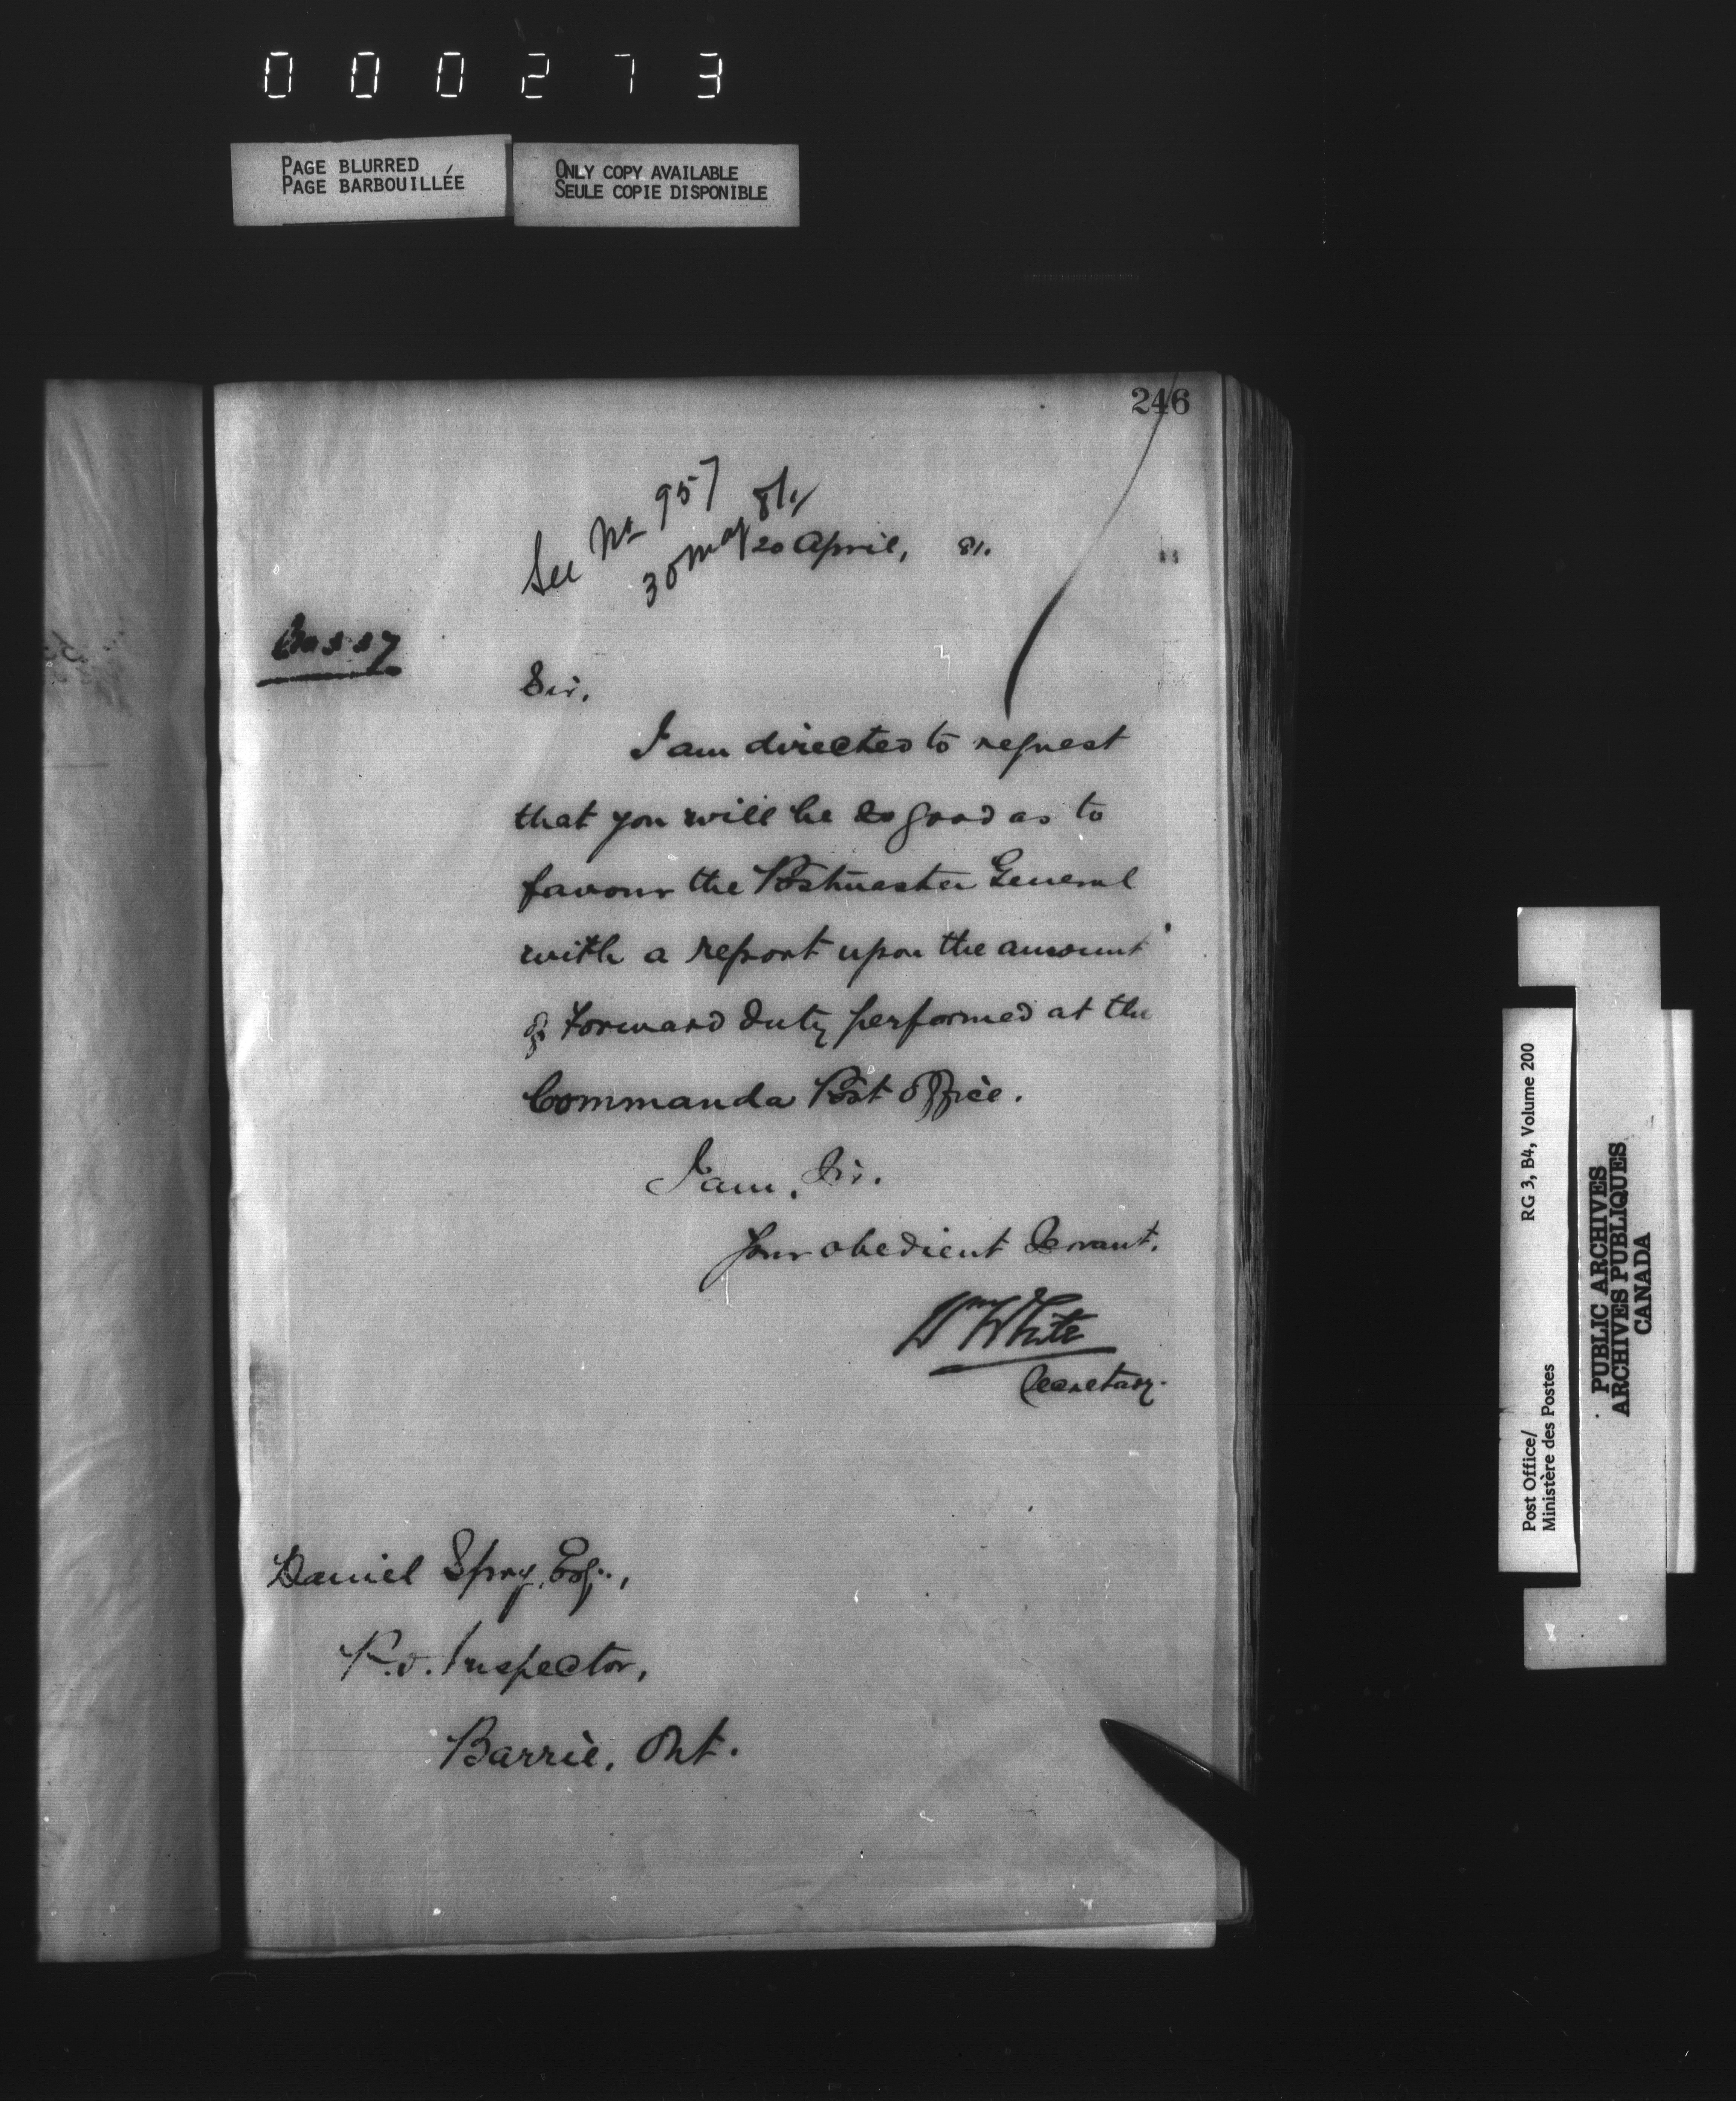 000273
PAGE BLURRED
PAGE BARBOUILLÉE
ONLY COPY AVAILABLE
SEULE COPIE DISPONIBLE
246
See No 957
30 May 81
20 April, 81.
Sir,
I am directed to request
that you will be so good as to
favour the Postmaster General
with a report upon the amount
of Forward duty performed at the
Commanda Post Office.
I am, Sir.
Your obedient Servant.
Wm White
Secretary.
Daniel Spry, Esq.,
P.O. Inspector,
Barrie, Ont.
Post Office/
Ministère des Postes
RG 3, B4, Volume 200
PUBLIC ARCHIVES
ARCHIVES PUBLIQUES
CANADA